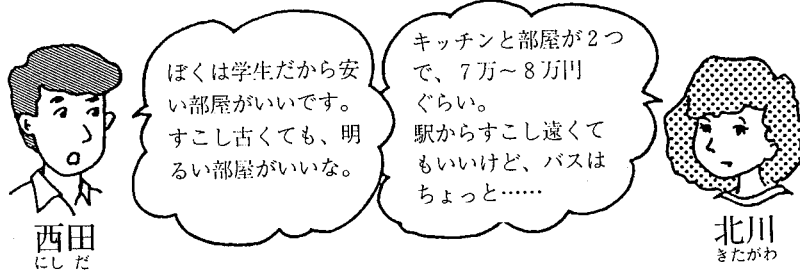 ぼくは学生だから安
い部屋がいいです。
すこし古くても、明
るい部屋がいいな。
キッチンと部屋が2つ
で、7万～8万円
ぐらい。
駅からすこし遠くて
もいいけど、バスは
ちょっと……
西田
にしだ
北川
きたがわ